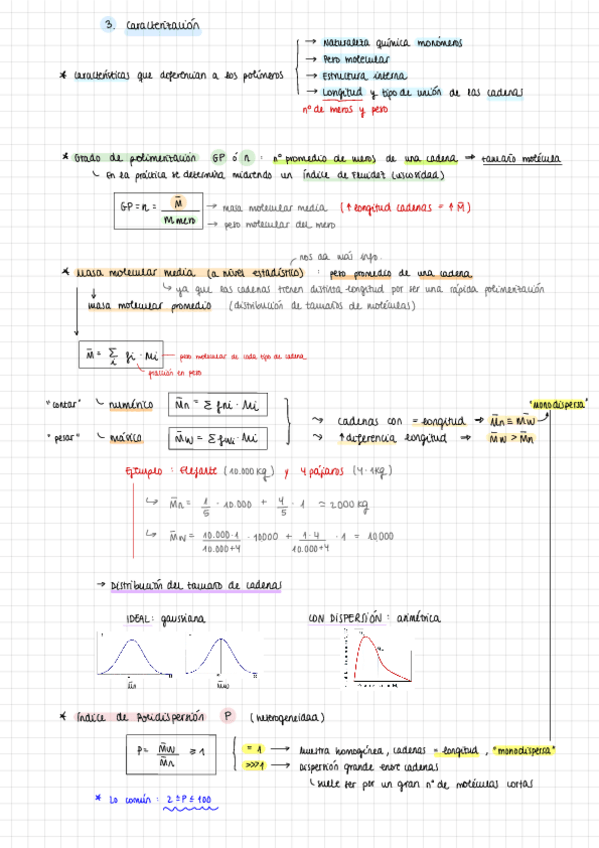 3. Caracterización
→ Naturaleza química monómeros
→ Peso molecular
* características que diferencian a los polímeros
→ Estructura interna
→ Longitud y tipo de unión de las cadenas
nº de meros y peso
* Grado de polimerización GP ó n : nº promedio de meros de una cadena ⇒ tamaño molécula
↳ En la práctica se determina midiendo un índice de Fluidez (viscosidad)
GP = n = M̄ / M mero
→ masa molecular media (↑ longitud cadenas = ↑ M̄)
→ peso molecular del mero
nos da más info.
* Masa molecular media (a nivel estadístico) : peso promedio de una cadena
↳ ya que las cadenas tienen distinta longitud por ser una rápida polimerización
masa molecular promedio (distribución de tamaños de moléculas)
M̄ = Σi fi · Mi
peso molecular de cada tipo de cadena
fracción en peso
"contar" ↳ numérico M̄n = Σ fni · Mi
"monodispersa"
⤳ cadenas con = longitud ⇒ M̄n ≡ M̄w
"pesar" ↳ másica M̄w = Σ fwi · Mi
⤳ ↑ diferencia longitud ⇒ M̄w > M̄n
Ejemplo : Elefante (10.000 kg) y 4 pájaros (4·1kg)
↳ M̄n = 1/5 · 10.000 + 4/5 · 1 ≃ 2000 kg
↳ M̄w = 10.000·1/10.000+4 · 10000 + 1·4/10.000+4 · 1 = 10,000
→ Distribución del tamaño de cadenas
IDEAL : gaussiana
CON DISPERSIÓN : asimétrica
M̄n
M̄w
* Índice de Polidispersión P (heterogeneidad)
P = M̄w / M̄n ≥ 1
= 1 → muestra homogénea, cadenas = longitud, "monodispersa"
>>>1 → dispersión grande entre cadenas
↳ suele ser por un gran nº de moléculas cortas
* Lo común : 2 ≤ P ≤ 100